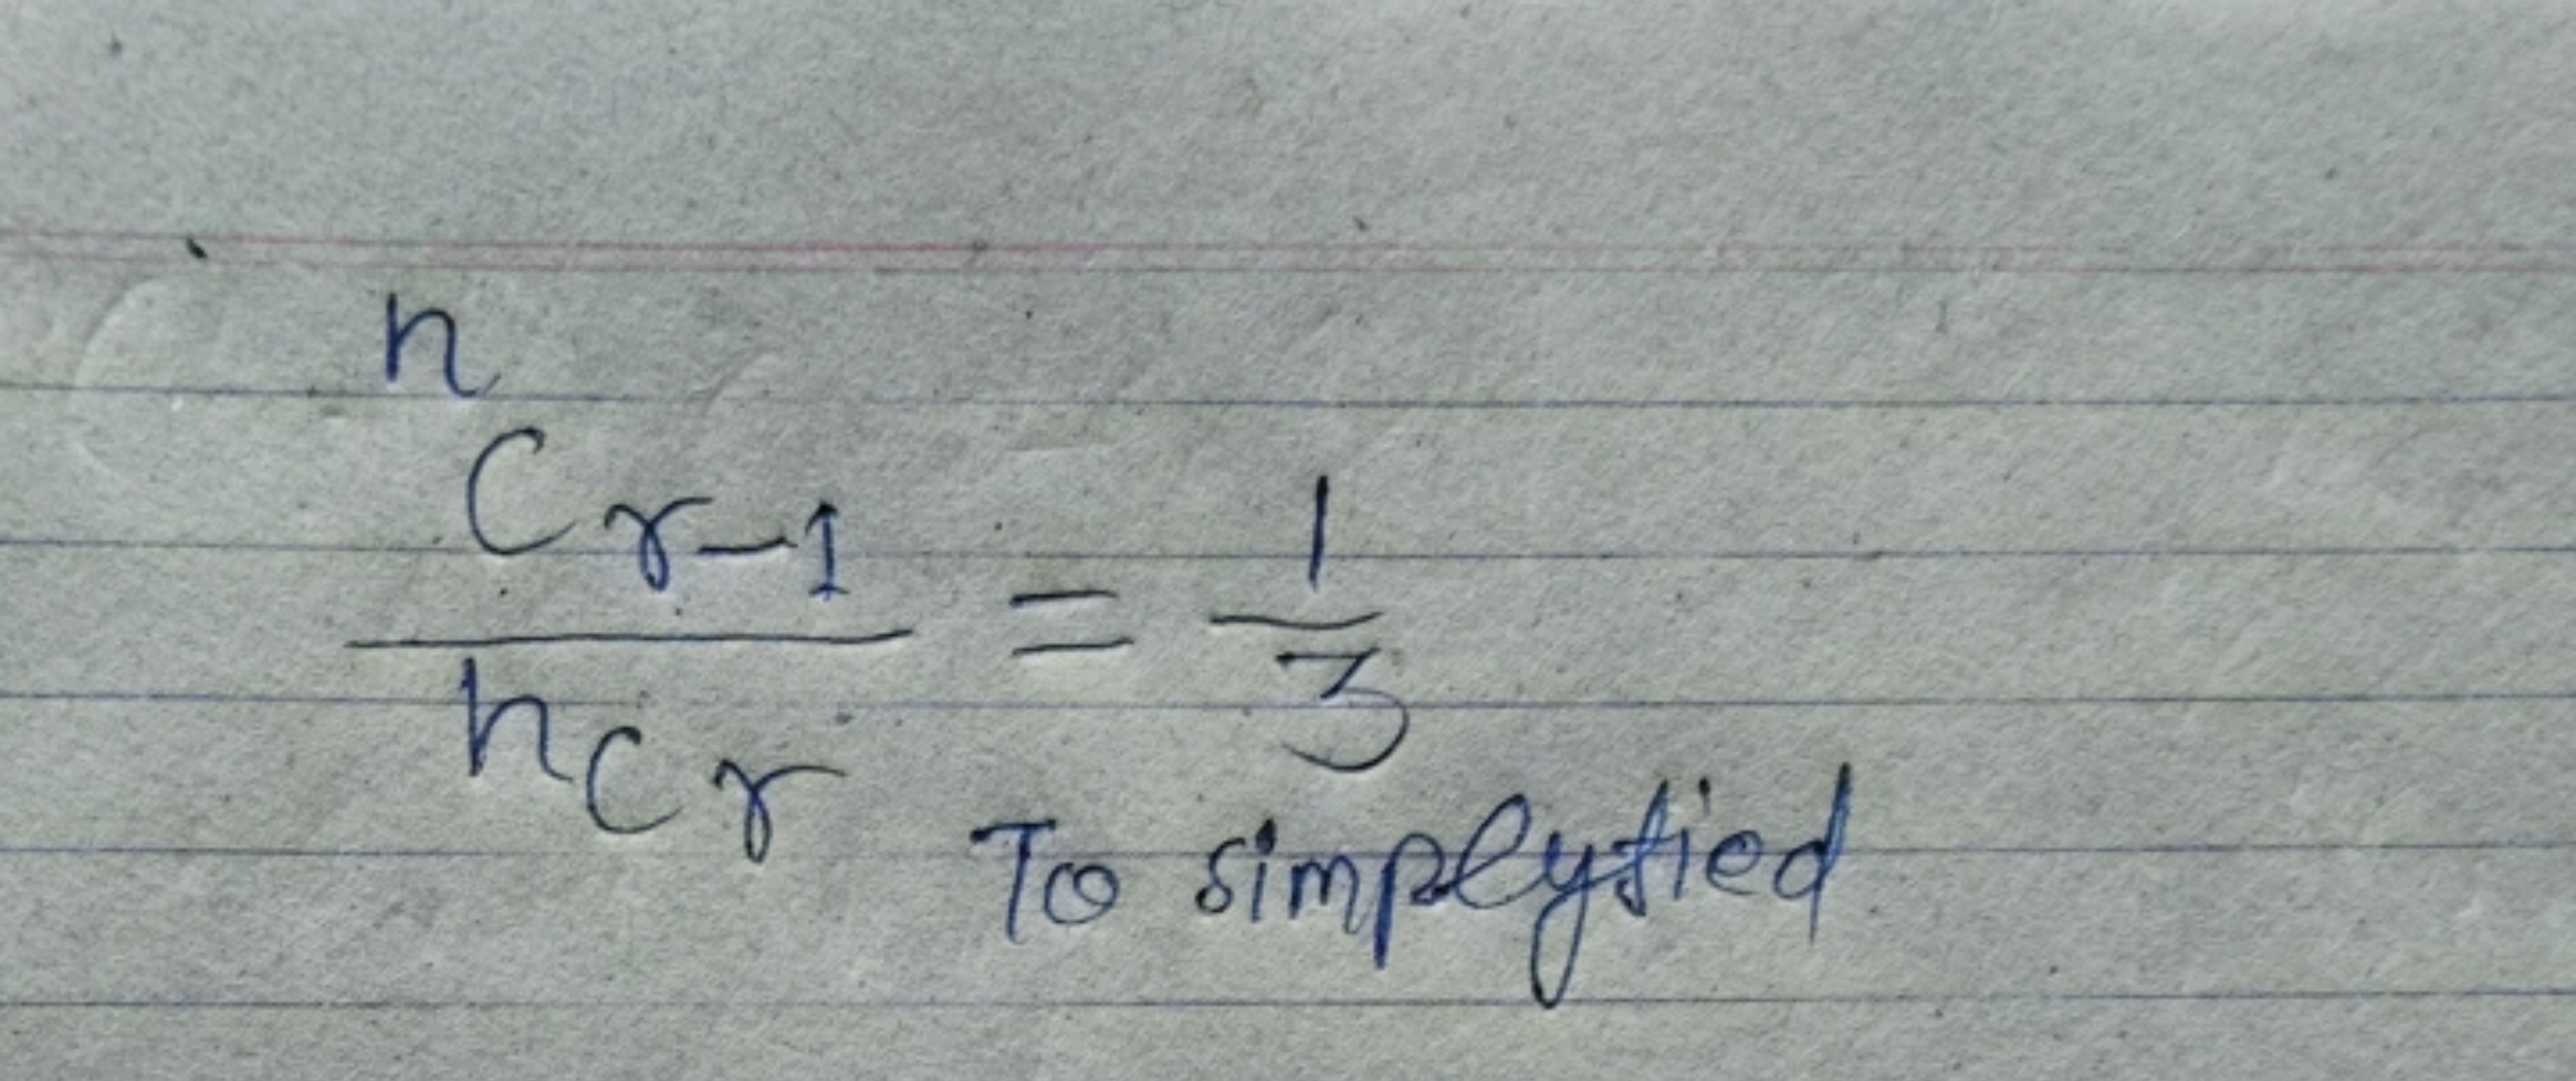 n
C r-1
— = 1/3
n C r
To simplyfied